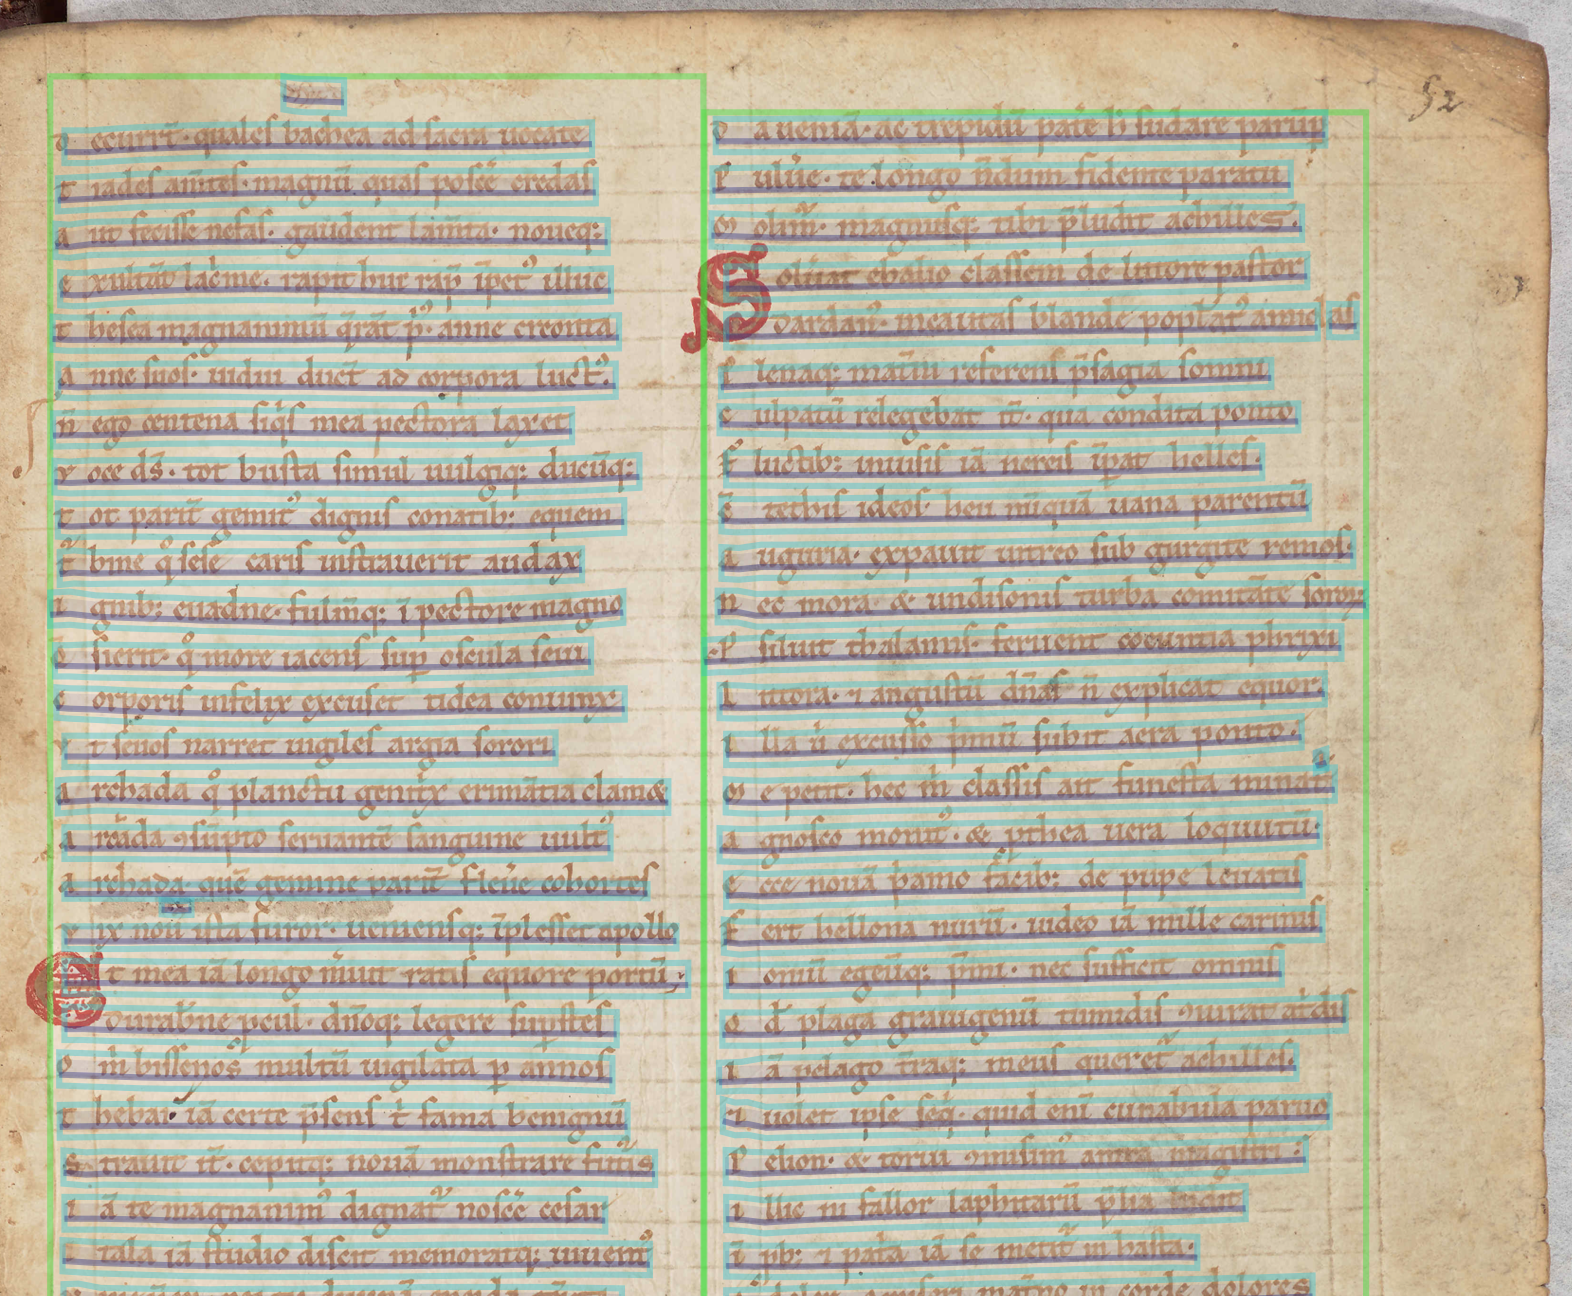 o ccurrt̄. quales bachea ad sacra uocate
t iades am̄tes. magnū quas poscē credas
a ut fecisse nefas. gaudent lam̄ta. noueq:
e xultāt lac̓me. rapit huc rap̄ īpetꝰ illuc
t hesea magnanimū q̄rāt p̓ꝰ. anne creonta
a nne suos. uidui duct̄ ad corpora luctꝰ.
n̄ ego centena siq̓s mea pectora laxet
v oce ds̄. tot busta simul uulgiq: ducūq:
t ot parit̄ gemitꝰ dignis conatib: equem
t᷑bine qͦ sese caris instrauerit audax
i gnib: euadne. fulm̄q: ī pectore magno
q̄sierit. qͦ more iacens sup oscula seui
c orporis infelix excuset tidea coniunx.
v t seuos narret uigiles argia sorori
a rchada qͦ planctu genit̓x erimātia clam&
a rcāda ꝯsūpto seruantē sanguine uultꝰ
a rchada. quē gemine parit̄ fleuē cohortes
v ix nouꝰ ista furor. ueniensq: īplesset apollo
Et mea iā longo m̓uit ratis equore portū.
Durab̓ne pcul. dn̄oq: legere sup̄stes
o m̓ bissenos multū uigilata ꝑ annos
t hebai. iā certe p̄sens t̓ fama benignū
s trauit it̄. cepitq: nouā monstrare futᷓis
i ā te magnanimꝰ dignat᷑ noscē cesar
i tala iā studio discit memoratq: iuuentꝰ
D a ueniā. ac trepidū patē h̓ sudare parūp
P uluē. te longo n̄dum fidente paratu
m olim᷑. magnusq: tibi p̄ludit achilles.
Soluat ebalio classem de littore pastor
Dardanꝰ. incautas blande popl̓atꝰ amiclas
p lenaq: mat̄nū referens p̄sagia somni
c ulpatū relegebat it̄. qua condita ponto
f luctib: inuisis iā nereis īp̄at helles.
c̄ tethis ideos. heu nūquā uana parentū
a uguria. expauit uitreo sub gurgite remos.
n ec mora. & undisonis turba comitāte soroꝝ
p siluit thalamis. feruent coeuntia phrixi
l ittora. ⁊ angustū dn̄as n̄ explicat equor.
i lla u̓ excusso p̓mū subit aera ponto.
m e petit. hec m̓ classis ait funesta minat᷑
a gnosco monitꝰ. & pthea uera loquutū.
e cce nouā p̓amo facib: de pupe leuatis
f ert bellona nurū. uideo iā mille carinis
i oniū egeūq: p̄mi. nec sufficit omnis
q d̓ plaga graiugenū tumidis ꝯiurat at̓dis
i ā pelago t̄raq: meus queret᷑ achilles.
& uolet ipse seq̓. quid enī cunabula paruo
p elion. & torui ꝯmisimꝰ antra magistri:
i llic ni fallor laphitarū p̄lia
ī pb: ⁊ pat̓a iā se metit᷑ in hasta.